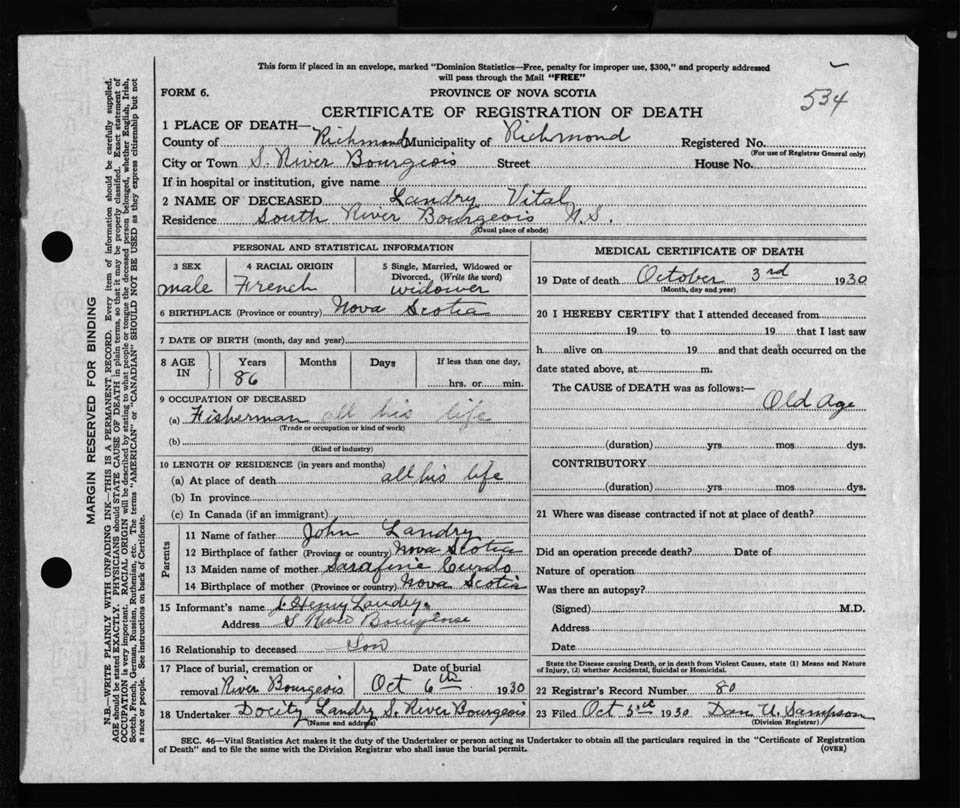 This form if placed in an envelope, marked "Dominion Statistics—Free, penalty for improper use, $300," and properly addressed
will pass through the Mail "FREE"
534
FORM 6.
PROVINCE OF NOVA SCOTIA
CERTIFICATE OF REGISTRATION OF DEATH
1 PLACE OF DEATH—
County of Richmond Municipality of Richmond Registered No.
(For use of Registrar General only)
City or Town S. River Bourgeois Street House No.
If in hospital or institution, give name
2 NAME OF DECEASED Landry Vital
Residence South River Bourgeois N.S.
(Usual place of abode)
PERSONAL AND STATISTICAL INFORMATION
3 SEX 4 RACIAL ORIGIN 5 Single, Married, Widowed or
Divorced. (Write the word)
male French widower
6 BIRTHPLACE (Province or country) Nova Scotia
7 DATE OF BIRTH (month, day and year)
8 AGE IN Years Months Days If less than one day,
86 hrs. or min.
9 OCCUPATION OF DECEASED
(a) Fisherman all his life
(Trade or occupation or kind of work)
(b)
(Kind of industry)
10 LENGTH OF RESIDENCE (in years and months)
(a) At place of death all his life
(b) In province
(c) In Canada (if an immigrant)
Parents
11 Name of father John Landry
12 Birthplace of father (Province or country) Nova Scotia
13 Maiden name of mother Sarafine
14 Birthplace of mother (Province or country) Nova Scotia
15 Informant's name Henry Landry
Address S River Bourgeoise
16 Relationship to deceased Son
17 Place of burial, cremation or Date of burial
removal River Bourgeois Oct 6th 1930
18 Undertaker Docity Landry S. River Bourgeois
(Name and address)
MEDICAL CERTIFICATE OF DEATH
19 Date of death October 3rd 1930
(Month, day and year)
20 I HEREBY CERTIFY that I attended deceased from
19 to 19 that I last saw
h alive on 19 and that death occurred on the
date stated above, at m.
The CAUSE OF DEATH was as follows:—
Old Age
(duration) yrs mos dys.
CONTRIBUTORY
(duration) yrs. mos. dys.
21 Where was disease contracted if not at place of death?
Did an operation precede death? Date of
Nature of operation
Was there an autopsy?
(Signed) M.D.
Address
Date
State the Disease causing Death, or in death from Violent Causes, state (1) Means and Nature
of Injury, (2) whether Accidental, Suicidal or Homicidal.
22 Registrar's Record Number 80
23 Filed Oct 1930 Dan U. Sampson
(Division Registrar)
SEC. 46—Vital Statistics Act makes it the duty of the Undertaker or person acting as Undertaker to obtain all the particulars required in the "Certificate of Registration
of Death" and to file the same with the Division Registrar who shall issue the burial permit.
(OVER)
MARGIN RESERVED FOR BINDING
N.B.—WRITE PLAINLY WITH UNFADING INK—THIS IS A PERMANENT RECORD. Every item of information should be carefully supplied.
AGE should be stated EXACTLY. PHYSICIANS should STATE CAUSE OF DEATH in plain terms, so that it may be properly classified. Exact statement of
OCCUPATION is very important. RACIAL ORIGIN will be described by stating to what people or tongue the deceased person belonged, whether English, Irish,
Scotch, French, German, Russian, Ruthenian, etc. The terms "AMERICAN" or "CANADIAN" SHOULD NOT BE USED as they express citizenship but not
a race or people. See instructions on back of Certificate.